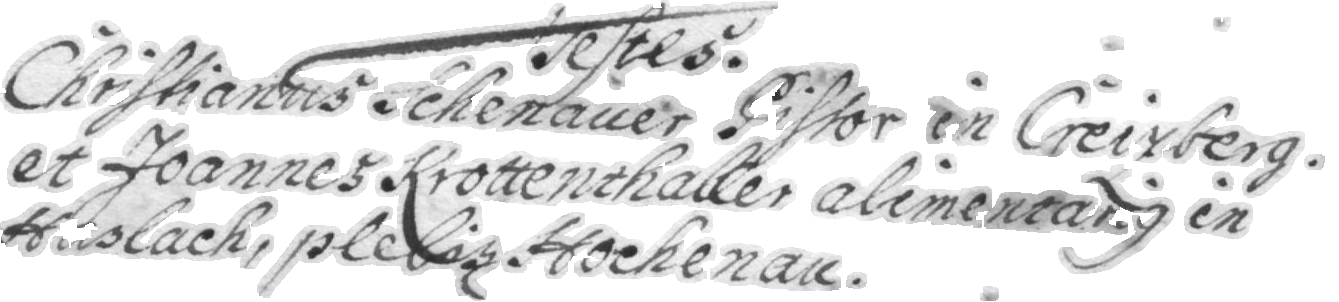 Testes.
Christianus Schenauer Pistor in Creizberg.
et Joannes Krottenthaller alimentarij in
Haslach, plebis Hochenau.